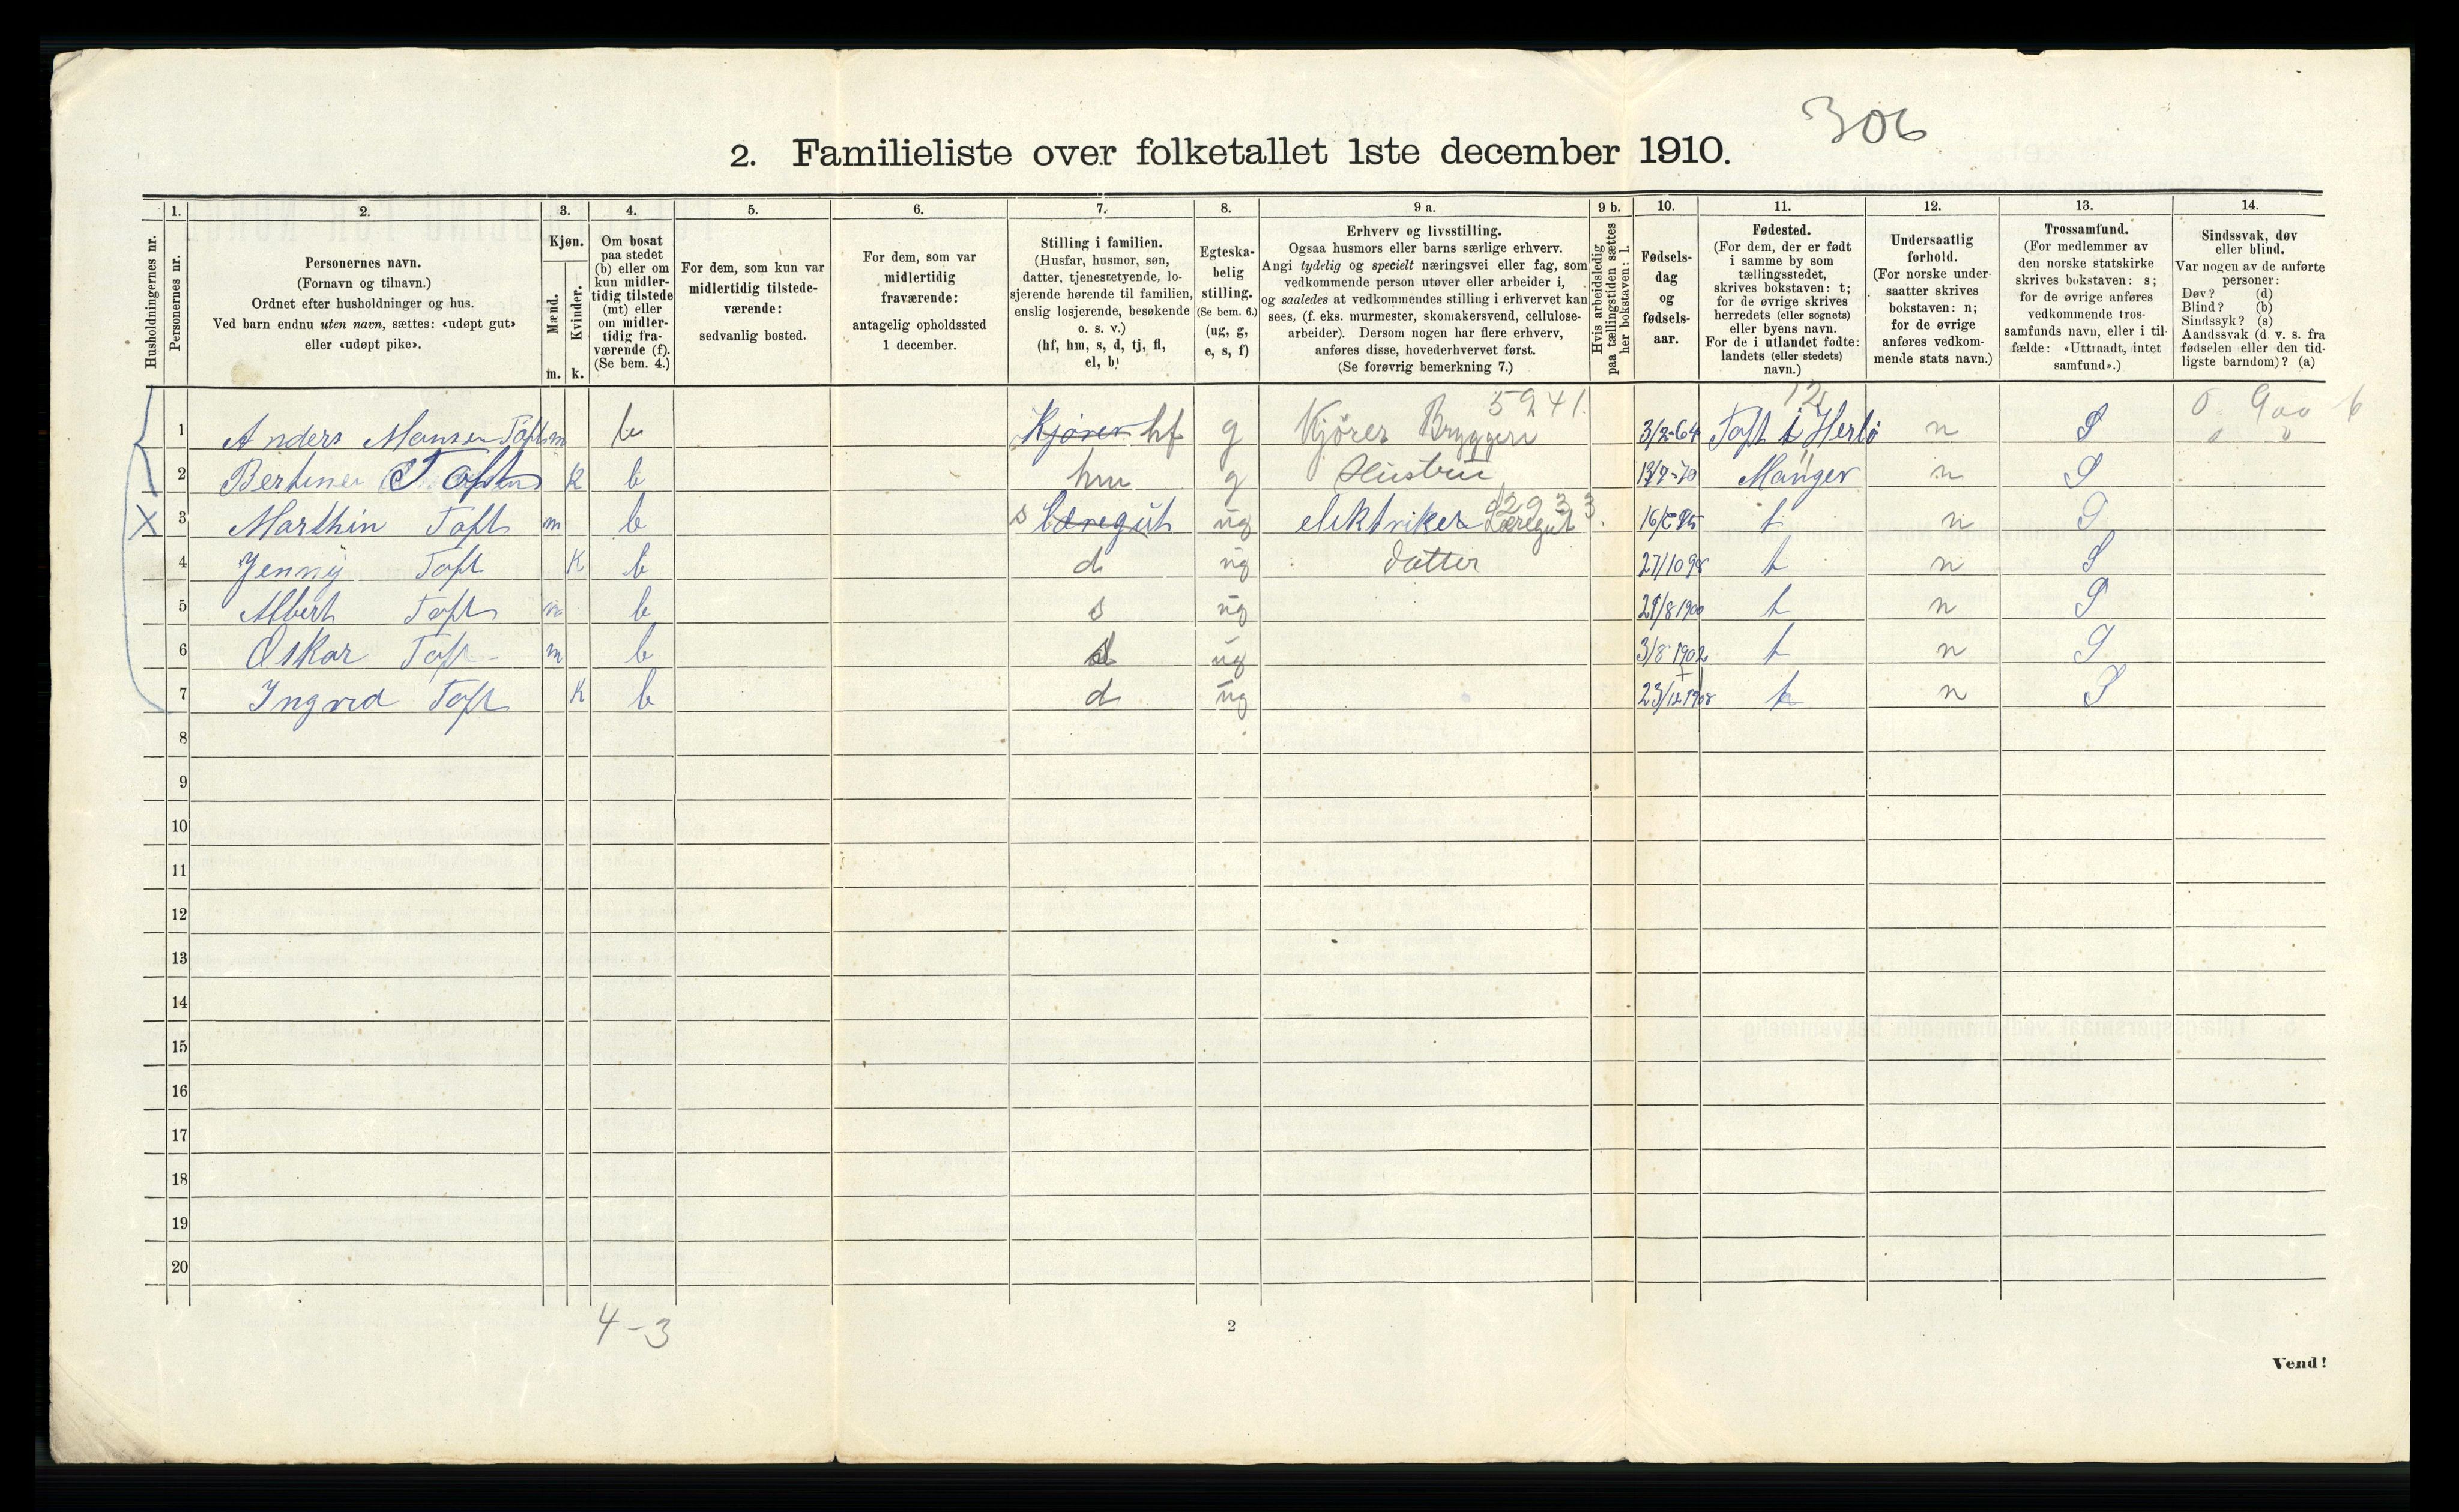 306
2. Familieliste over folketallet 1ste december 1910.
1. 2. 3. 4. 5. 6. 7. 8. 9 a. 9 b. 10. 11. 12. 13. 14.
Husholdningernes nr.
Personernes nr.
Personernes navn.
(Fornavn og tilnavn.)
Ordnet efter husholdninger og hus.
Ved barn endnu uten navn, sættes: «udøpt gut»
eller «udøpt pike».
Kjøn.
Mænd.
Kvinder.
m. k.
Om bosat
paa stedet
(b) eller om
kun midler-
tidig tilstede
(mt) eller
om midler-
tidig fra-
værende (f).
(Se bem. 4.)
For dem, som kun var
midlertidig tilstede-
værende:
sedvanlig bosted.
For dem, som var
midlertidig
fraværende:
antagelig opholdssted
1 december.
Stilling i familien.
(Husfar, husmor, søn,
datter, tjenestetyende, lo-
sjerende hørende til familien,
enslig losjerende, besøkende
o. s. v.)
(hf, hm, s, d, tj, fl,
el, b)
Egteska-
belig
stilling.
(Se bem. 6.)
(ug, g,
e, s, f)
Erhverv og livsstilling.
Ogsaa husmors eller barns særlige erhverv.
Angi tydelig og specielt næringsvei eller fag, som
vedkommende person utøver eller arbeider i,
og saaledes at vedkommendes stilling i erhvervet kan
sees, (f. eks. murmester, skomakersvend, cellulose-
arbeider). Dersom nogen har flere erhverv,
anføres disse, hovederhvervet først.
(Se forøvrig bemerkning 7.)
Hvis arbeidsledig
paa tællingstiden sættes
her bokstaven: l.
Fødsels-
dag
og
fødsels-
aar.
Fødested.
(For dem, der er født
i samme by som
tællingsstedet,
skrives bokstaven: t;
for de øvrige skrives
herredets (eller sognets)
eller byens navn.
For de i utlandet fødte:
landets (eller stedets)
navn.)
Undersaatlig
forhold.
(For norske under-
saatter skrives
bokstaven: n;
for de øvrige
anføres vedkom-
mende stats navn.)
Trossamfund.
(For medlemmer av
den norske statskirke
skrives bokstaven: s;
for de øvrige anføres
vedkommende tros-
samfunds navn, eller i til-
fælde: «Uttraadt, intet
samfund».)
Sindssvak, døv
eller blind.
Var nogen av de anførte
personer:
Døv? (d)
Blind? (b)
Sindssyk? (s)
Aandssvak (d. v. s. fra
fødselen eller den tid-
ligste barndom)? (a)
5941. 12
1 Anders Mansen Toft m b Kjører hf g Kjører Bryggeri 3/2-64 Toft i Herlø n S
2 Bertine Toft K b hm g Hustru 13/7-70 Manger n S
X 3 Marthin Toft m b s Læregut ug elektriker Læregut t n S
4 Jenny Toft K b d ug datter 27/10 98 t n S
5 Albert Toft m b s ug 29/8 1900 t n S
6 Oskar Toft m b s ug 3/8 1902 t n S
7 Ingrid Toft K b d ug 23/12 1908 t n S
8
9
10
11
12
13
14
15
16
17
18
19
20
4-3
2
Vend!